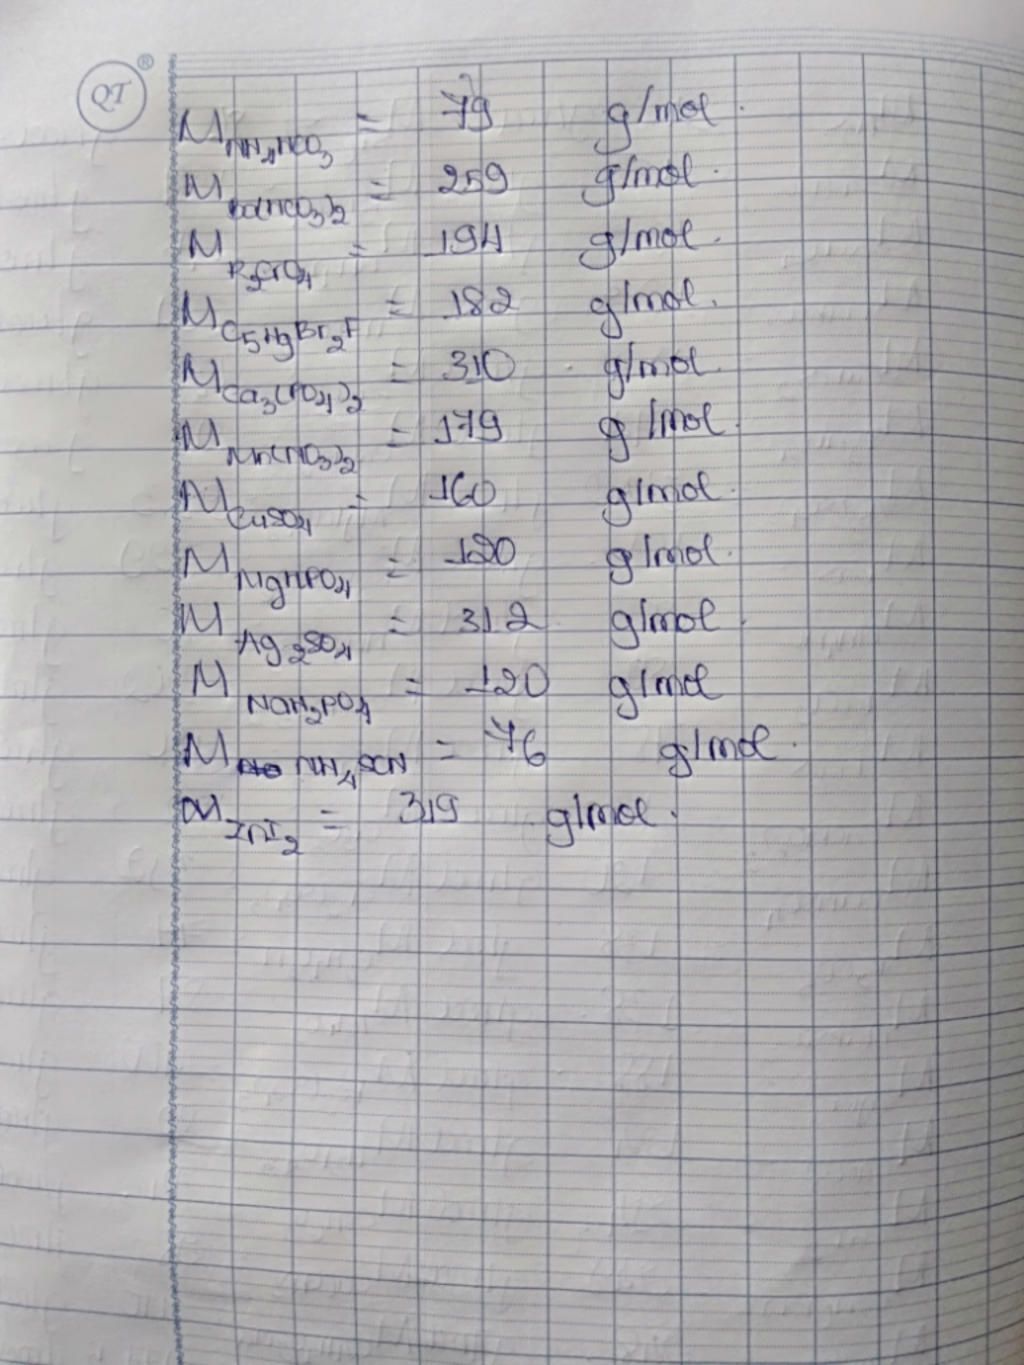 QT ®
M NH4HCO3 = 79 g/mol.
M Ba(HCO3)2 = 259 g/mol.
M K2CrO4 = 194 g/mol.
M C5H9Br2F = 182 g/mol.
M Ca3(PO4)2 = 310 g/mol.
M Mn(NO3)2 = 179 g/mol.
M CuSO4 = 160 g/mol.
M MgHPO4 = 120 g/mol.
M Ag2SO4 = 312 g/mol.
M NaH2PO4 = 120 g/mol
M NH4SCN = 76 g/mol.
M ZnI2 = 319 g/mol.